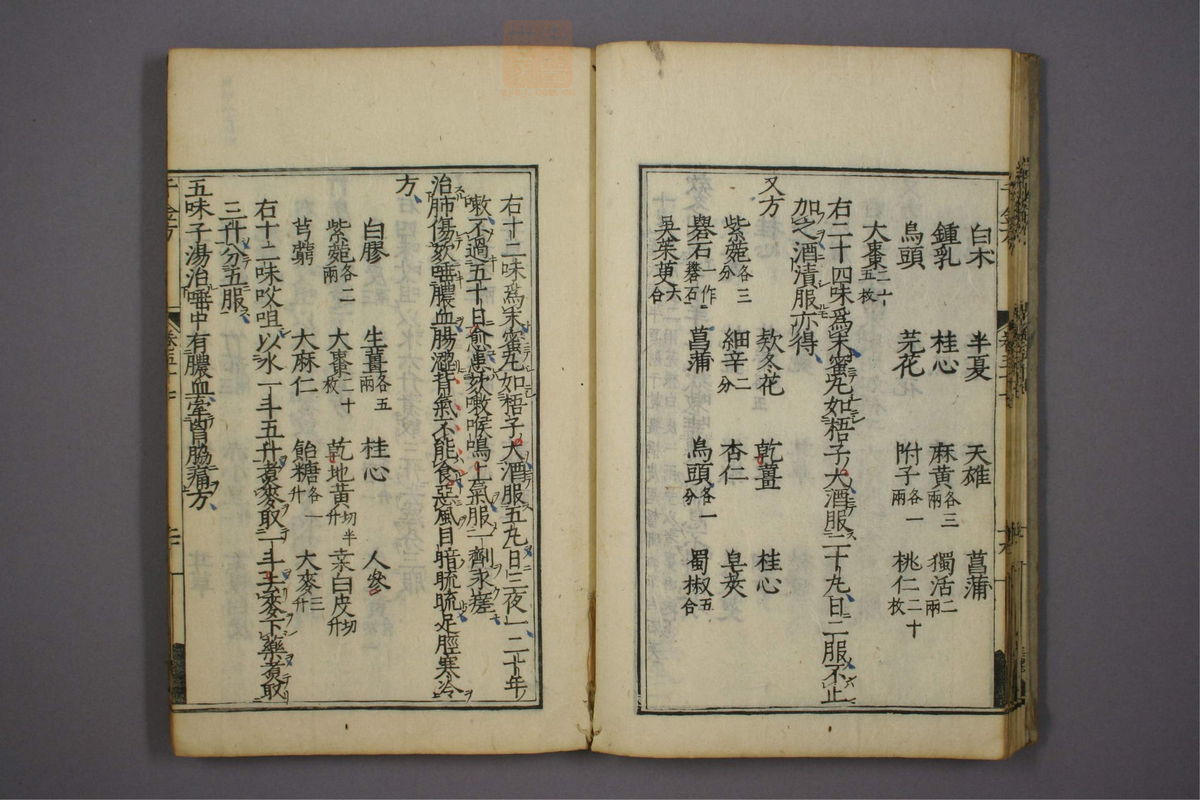 白朮 半夏 天雄 菖蒲
鍾乳 桂心 麻黃各三兩 獨活二兩
烏頭 芫花 附子各一兩 桃仁二十枚
大棗二十五枚
右二十四味爲末蜜丸如梧子大酒服二十丸日二服不止
加之酒漬服亦得
又方
紫菀各三分 款冬花 乾薑 桂心
細辛二分 杏仁 皂莢
礜石一作礬石 菖蒲 烏頭各一分 蜀椒五合
吳茱萸六合
右十二味爲末蜜丸如梧子大酒服五丸日三夜一二十年
嗽不過五十日愈患欬嗽喉鳴上氣服一劑永瘥
治肺傷欬唾膿血腸澀背氣不能食惡風目暗䀮䀮足脛寒冷
方
白膠 生薑各五兩 桂心 人參
紫菀各二兩 大棗二十枚 乾地黃切半升 桑白皮切升
芎藭 大麻仁 飴糖各一升 大麥三升
右十二味㕮咀以水一斗五升煮麥取一斗去麥下藥煮取
三升分五服
五味子湯治唾中有膿血牽胷脇痛方